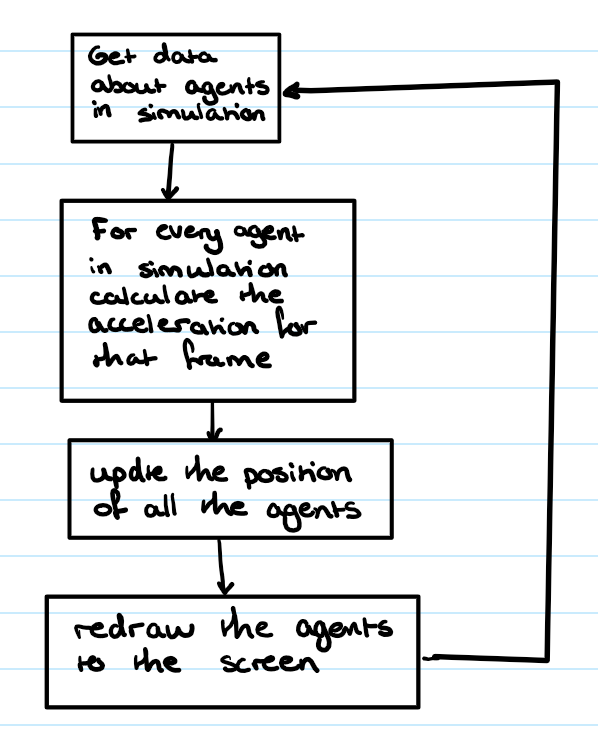 Get data
about agents
in simulation
For every agent
in simulation
calculate the
acceleration for
that frame
updte the position
of all the agents
redraw the agents
to the screen